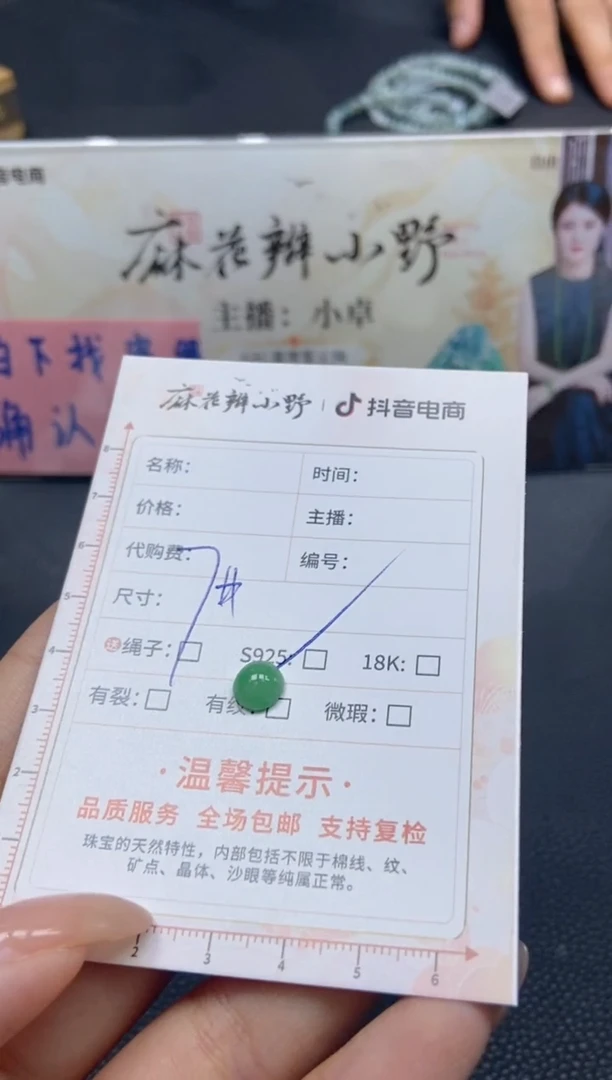 音电商
麻花辫小野
主播：小卓
拍下找客服
确认
麻花辫小野 | 抖音电商
名称：
时间：
价格：
主播：
代购费：
编号：
7#
尺寸：
送 绳子：
S925：
18K：
有裂：
有纹
微瑕：
·温馨提示·
品质服务 全场包邮 支持复检
珠宝的天然特性，内部包括不限于棉线、纹、
矿点、晶体、沙眼等纯属正常。
8
7
6
5
4
3
2
2 3 4 5 6